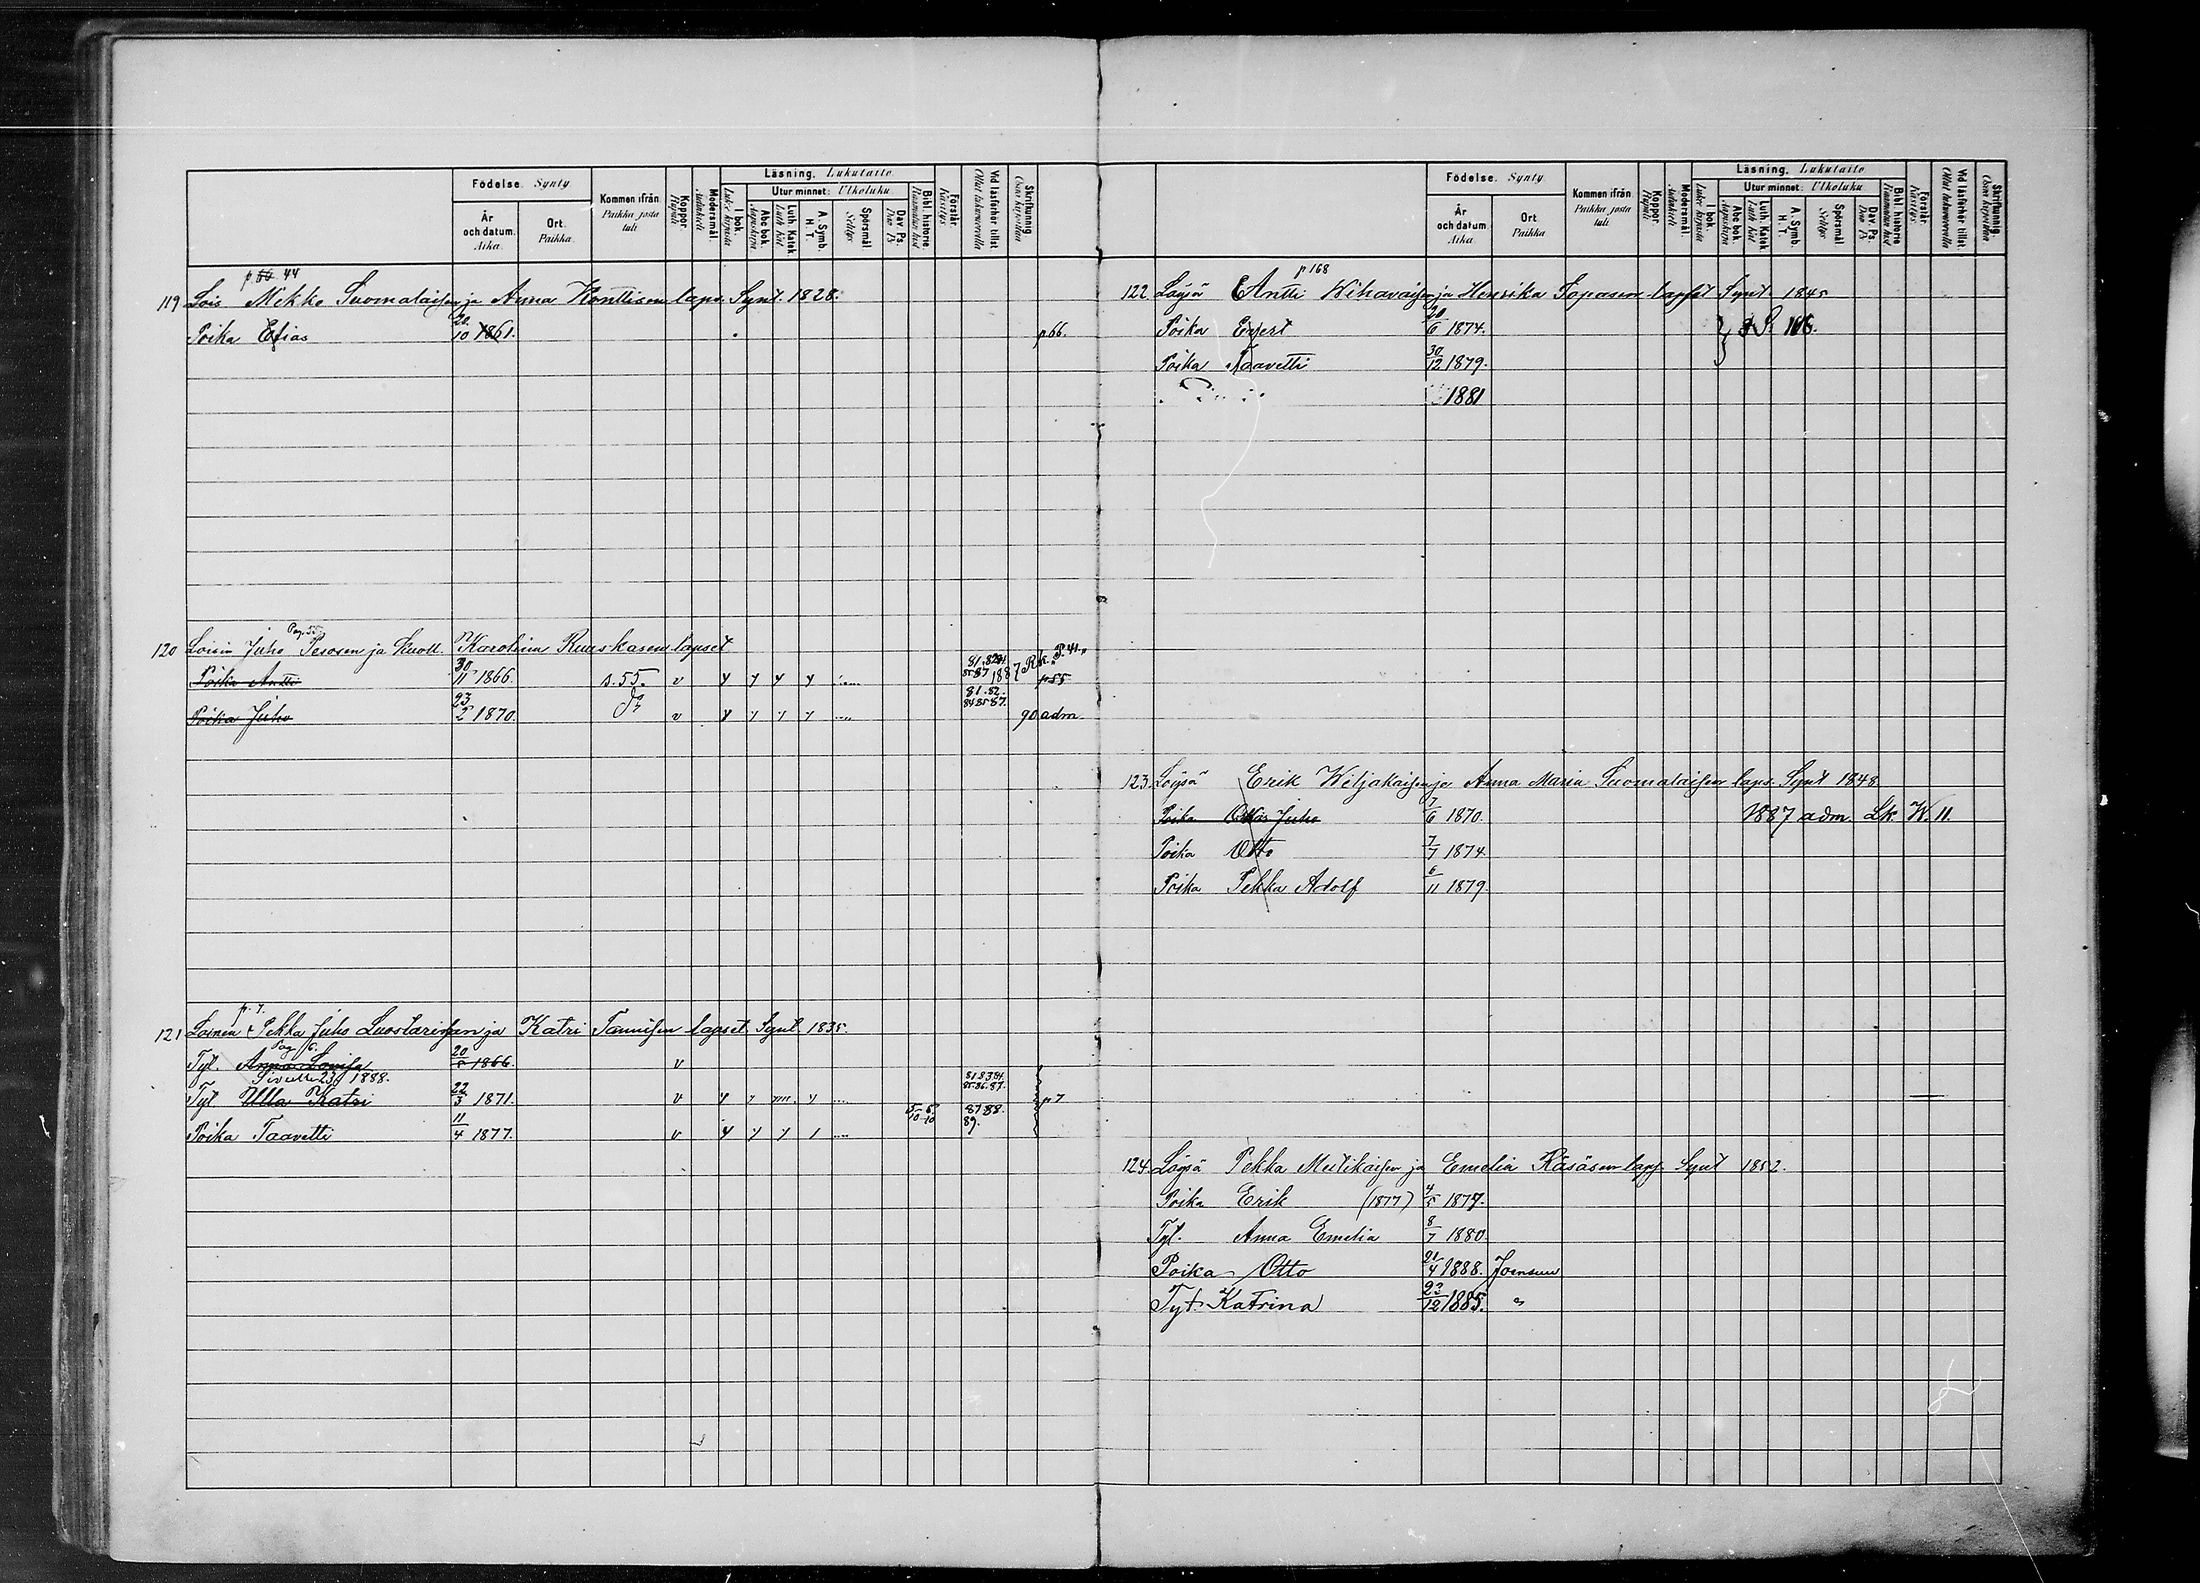 Födelse. Synty.
Kommen ifrån. Paikka josta tuli
Koppor. Rupuli
Modersmål. Äidinkieli
Läsning. Lukutaito
Utur minnet: Ulkoluku
I bok. Luku kirjasta
Abc bok. Aapiskirja
Luth. Katek. Luth. Kat.
A. Symb. H. T.
Spörsmål Selitys
Dav. Ps. Dav. Ps.
Bibl. historie
Förstår. Käsitys
Vid läsförhör tillst. Ollut lukuvuorolla
Skriftkunnig. Osaa kirjoittaa
År och datum. Aika.
Ort. Paikka.
p. 66 44
119 Lois Mikko Suomalaisen ja Anna Konttisen laps. Synt. 1828.
Poika Elias 20/10 1861. p 66.
Pag. 55
120 Loisin Juho Pesosen ja kuoll. Karolina Ruuskasen lapset
Poika Antti 30/11 1866. s. 55. v 1887 Rk. P. 41. p 55
81. 82.
84 85 87.
Poika Juho 23/2 1870. v 90 adm.
p. 7.
121 Loinen Pekka Juho Luostarisen ja Katri Tannisen lapset. Synt. 1835.
Pag 6.
Tyt. Anna Lovisa 20/5 1866. v
Siviilli 23/ 1888. 81 83 84.
85. 86. 87.
Tyt. Ulla Katri 22/3 1871. v p 7
87 88.
Poika Taavetti 11/4 1877. v 89.
Födelse. Synty.
Kommen ifrån. Paikka josta tuli
Koppor. Rupuli
Modersmål. Äidinkieli
Läsning. Lukutaito
Utur minnet: Ulkoluku
I bok. Luku kirjasta
Abc bok. Aapiskirja
Luth. Katek. Luth. Kat.
A. Symb. H. T.
Spörsmål Selitys
Dav. Ps. Dav. Ps.
Bibl. historie
Förstår. Käsitys
Vid läsförhör tillst. Ollut lukuvuorolla
Skriftkunnig. Osaa kirjoittaa
År och datum. Aika
Ort. Paikka
p 168
122 Löysä Antti Wihavaisen ja Henrika Toposen lapset Synt. 1845
Poika Ernest 20/6 1874. S. 166.
Poika Taavetti 30/12 1879.
1881
123. Löysä Erik Wiljakaisen ja Anna Maria Suomalaisen laps. Synt 1848
Poika Otto Juho 7/6 1870. 1887 adm. Lk. W. 11.
Poika Otto 7/7 1874
Poika Pekka Adolf 6/11 1879.
124. Löysä Pekka Mutikaisen ja Emelia Räsäsen laps. Synt 1852.
Poika Erik (1877) 4/5 1877.
Tyt. Anna Emelia 8/7 1880.
Poika Otto 21/4 1888. Joensuu
Tyt. Katrina 23/12 1885. "